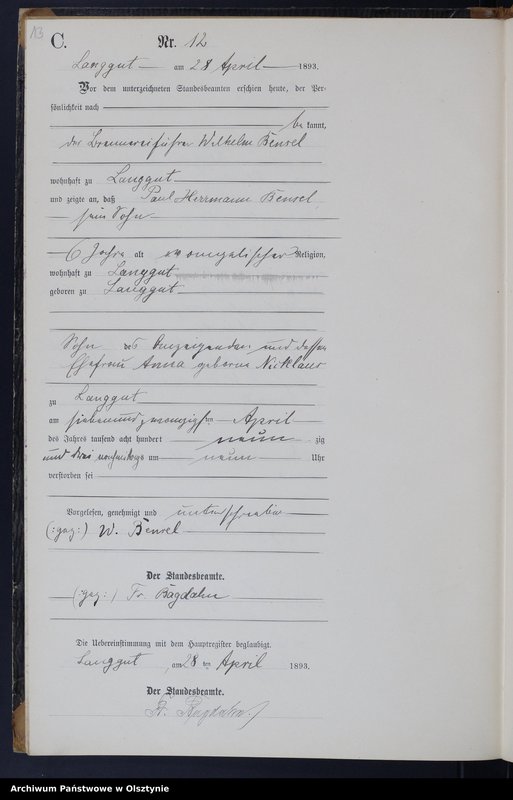 13
C.
Nr. 12
Langgut am 28 April 1893.
Vor dem unterzeichneten Standesbeamten erschien heute, der Per-
sönlichkeit nach
bekannt,
der Brennereiführer Wilhelm Bensel
wohnhaft zu Langgut
und zeigte an, daß Paul Herrmann Bensel
sein Sohn
6 Jahre alt evangelischer Religion,
wohnhaft zu Langgut
geboren zu Langgut
Sohn des Anzeigenden und dessen
Ehefrau Anna geborne Nicklaus
zu Langgut
am siebenundzwanzigsten April
des Jahres tausend acht hundert neun zig
und drei nachmittags um neun Uhr
verstorben sei
Vorgelesen, genehmigt und unterschrieben
(:gez:) W. Bensel
Der Standesbeamte.
(:gez:) Fr. Bagdahn
Die Uebereinstimmung mit dem Hauptregister beglaubigt.
Langgut am 28 ten April 1893.
Der Standesbeamte.
Fr. Bagdahn
Archiwum Państwowe w Olsztynie